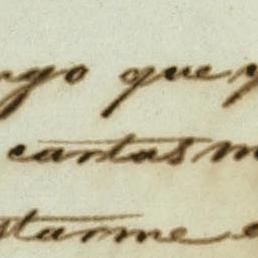 ngo que y
cartas m
starme e